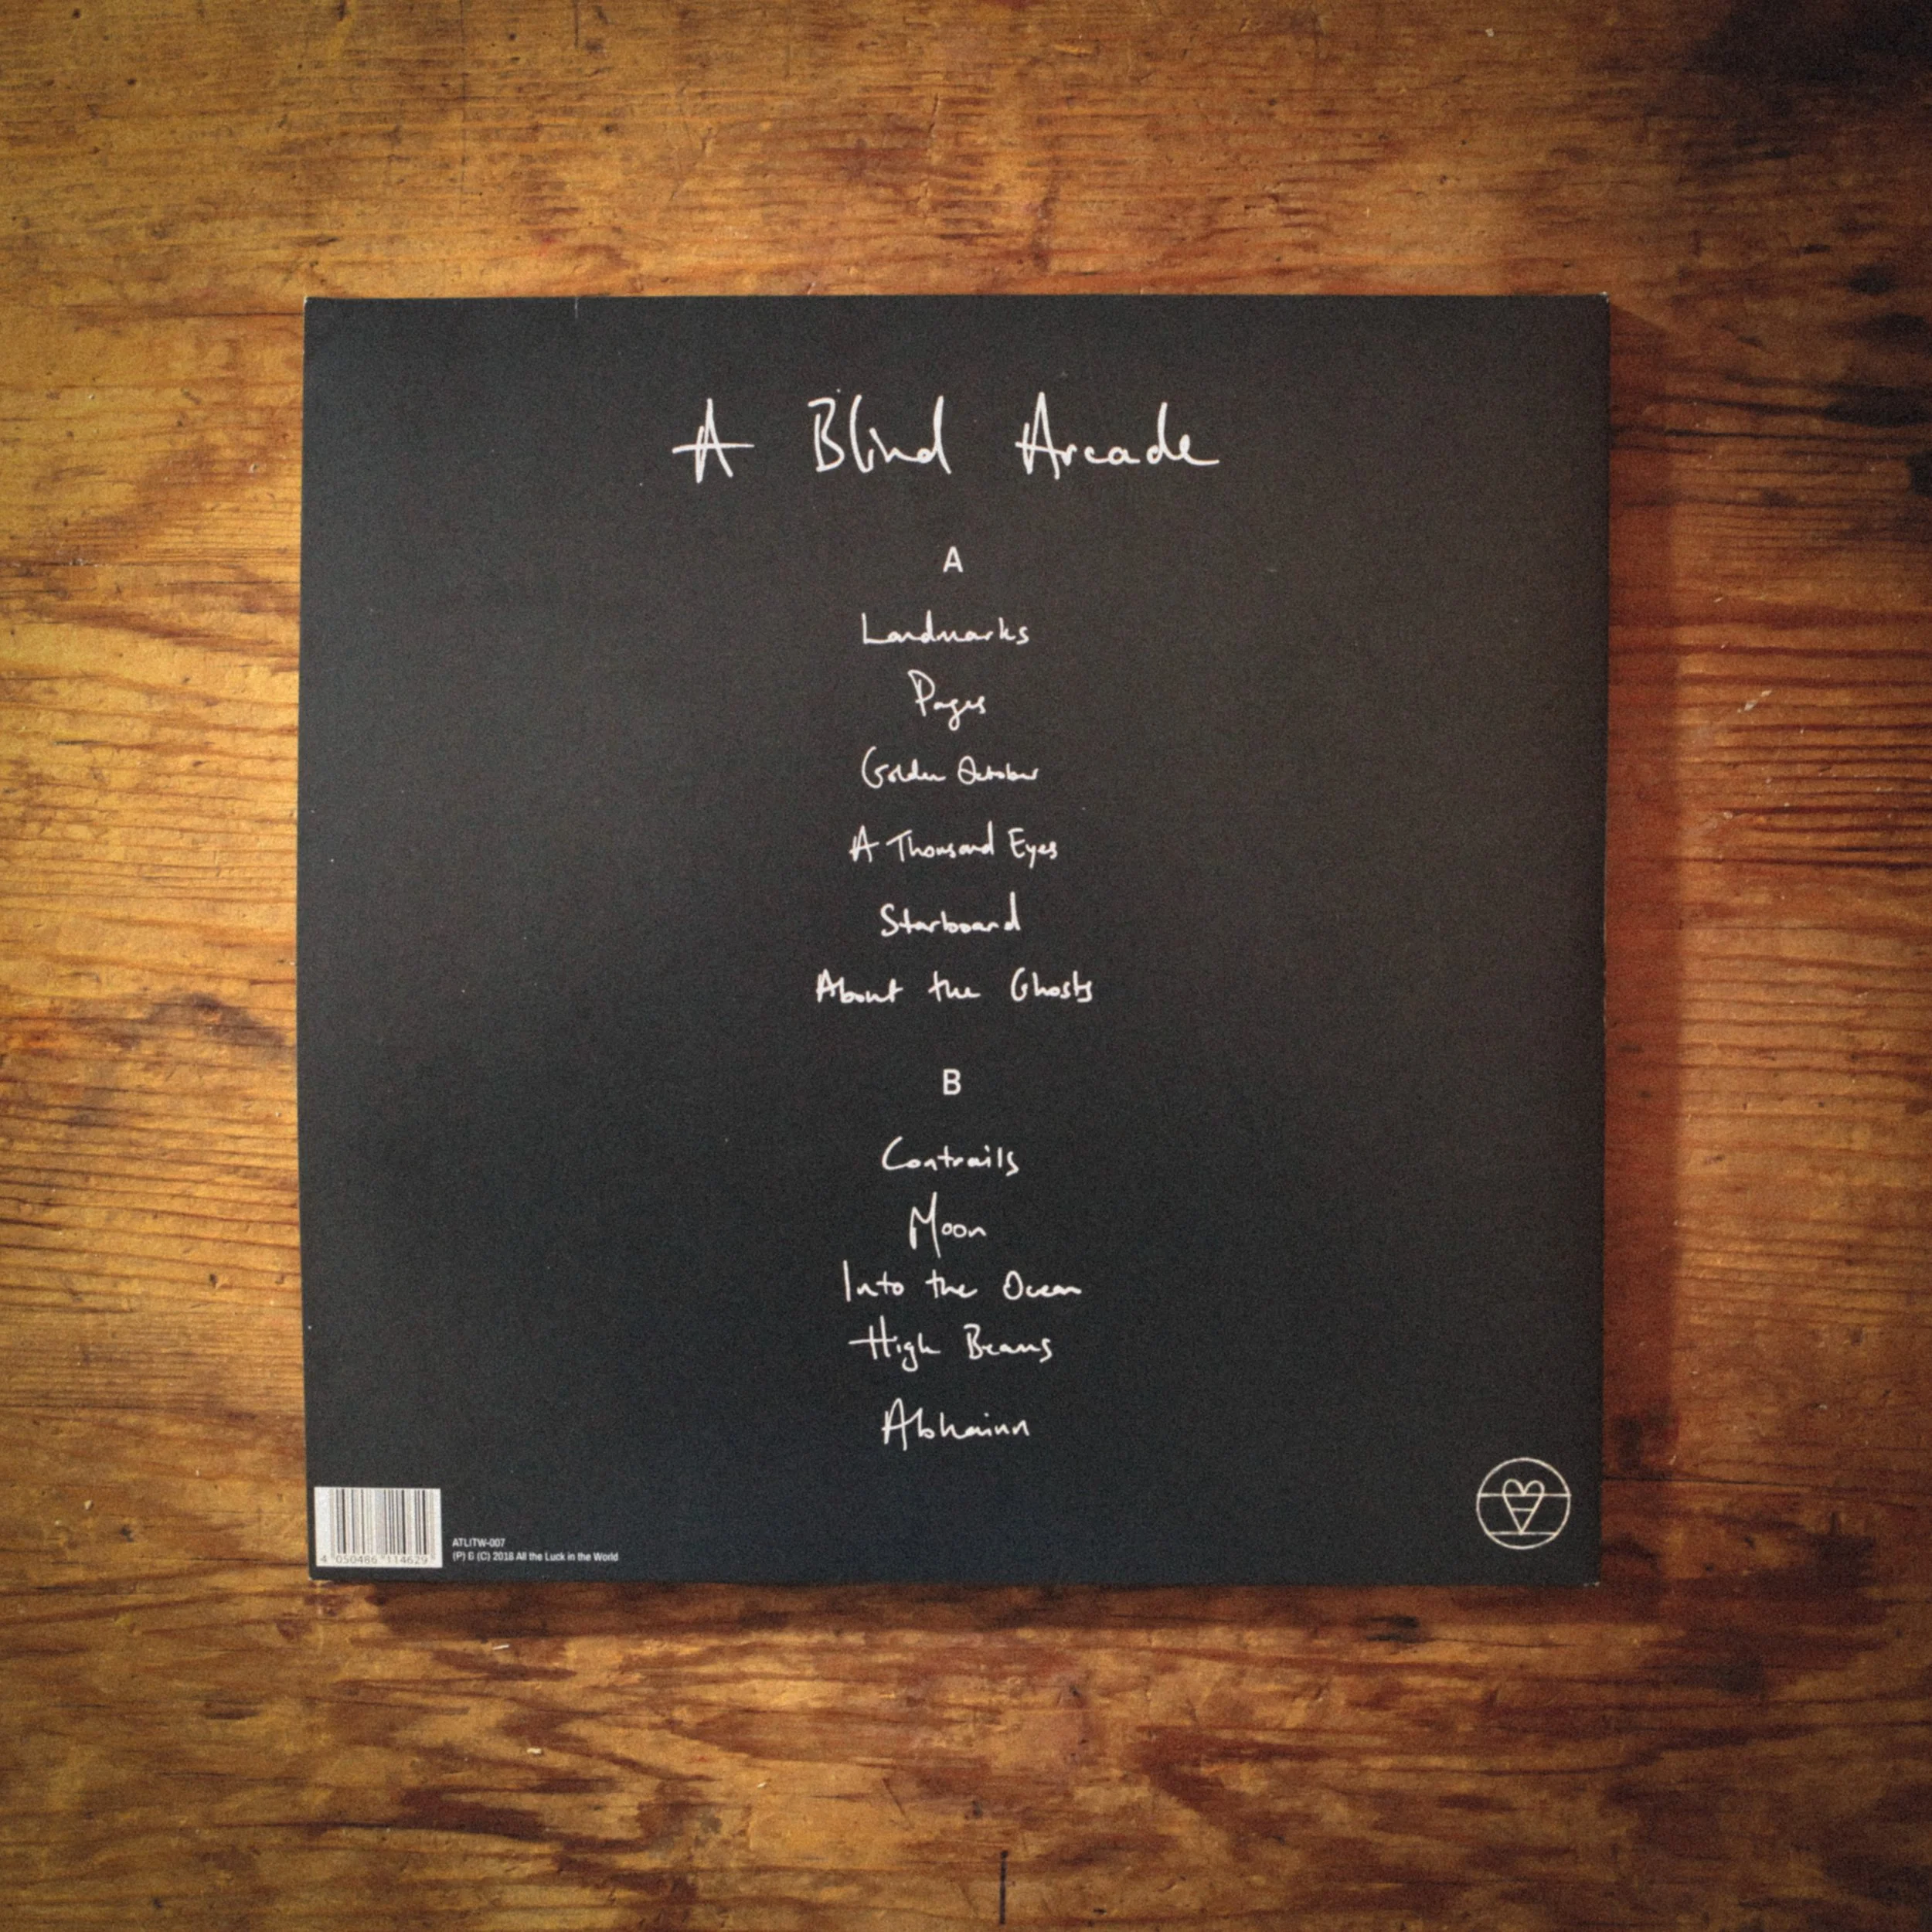 A Blind Arcade
A
Landmarks
Pages
Golden October
A Thousand Eyes
Starboard
About the Ghosts
B
Contrails
Moon
Into the Ocean
High Beams
Abhainn
4 050486 114629
ATLITW-007
(P) & (C) 2018 All the Luck in the World